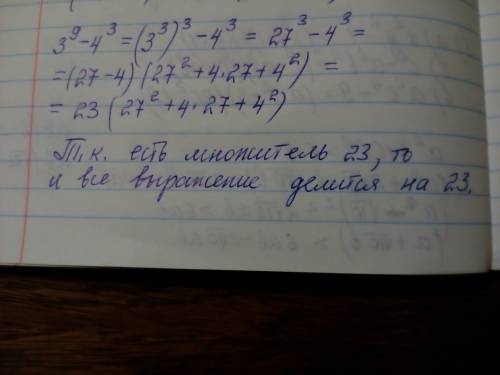 3⁹-4³=(3³)³-4³=27³-4³=
=(27-4)(27²+4·27+4²)=
=23(27²+4·27+4²)
Т.к. есть множитель 23, то
и все выражение делится на 23.